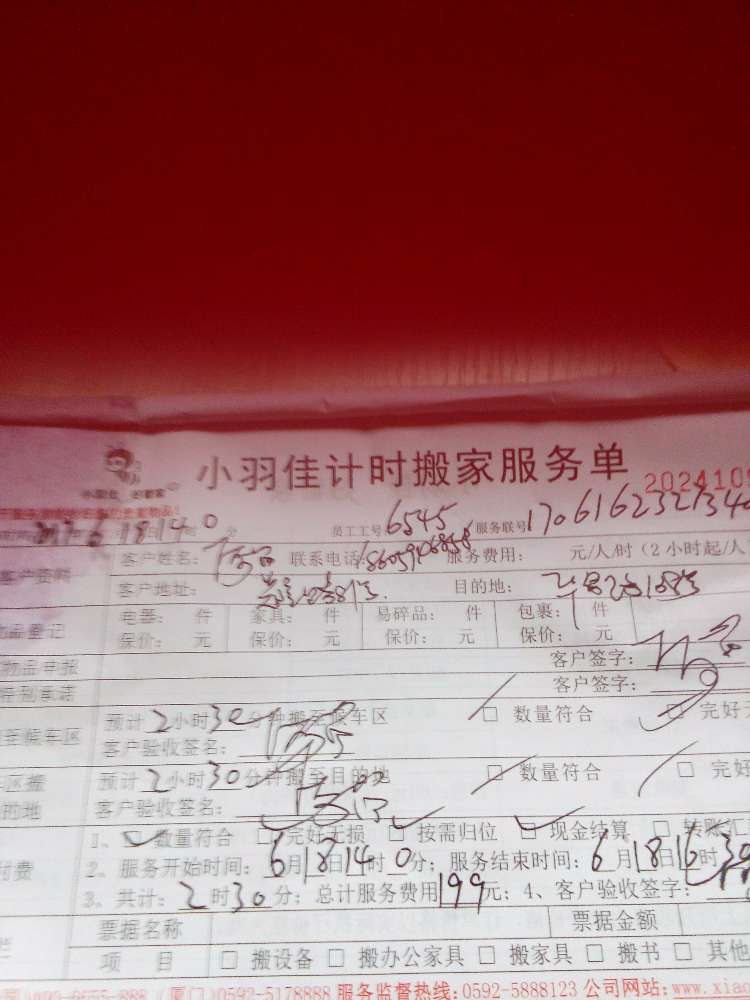 小羽佳计时搬家服务单 2024109
2017 6 18 14 0 分 员工工号 6545 服务联号 170616232134
客户资料 客户姓名: 联系电话: 服务费用: 元/人/时(2小时起/人
客户地址: 目的地:
物品登记 电器: 件 家具: 件 易碎品: 件 包裹: 件
保价: 元 保价: 元 保价: 元 保价: 元
物品申报 客户签字:
特别承诺 客户签字:
至候车区 预计2小时30分钟搬至候车区 □ 数量符合 □ 完好
客户验收签名:
车区搬 预计2小时30分钟搬至目的地 □ 数量符合 □ 完好
的地 客户验收签名:
付费 1、□ 数量符合 □ 完好无损 □ 按需归位 □ 现金结算 □ 转账汇
2、服务开始时间: 6月18日14时0分; 服务结束时间: 6月18日16时30
3、共计: 2时30分; 总计服务费用199元; 4、客户验收签字:
票据名称 票据金额
项 目 □ 搬设备 □ 搬办公家具 □ 搬家具 □ 搬书 □ 其他
(厦门)0592-5178888 服务监督热线: 0592-5888123 公司网站: www.xia